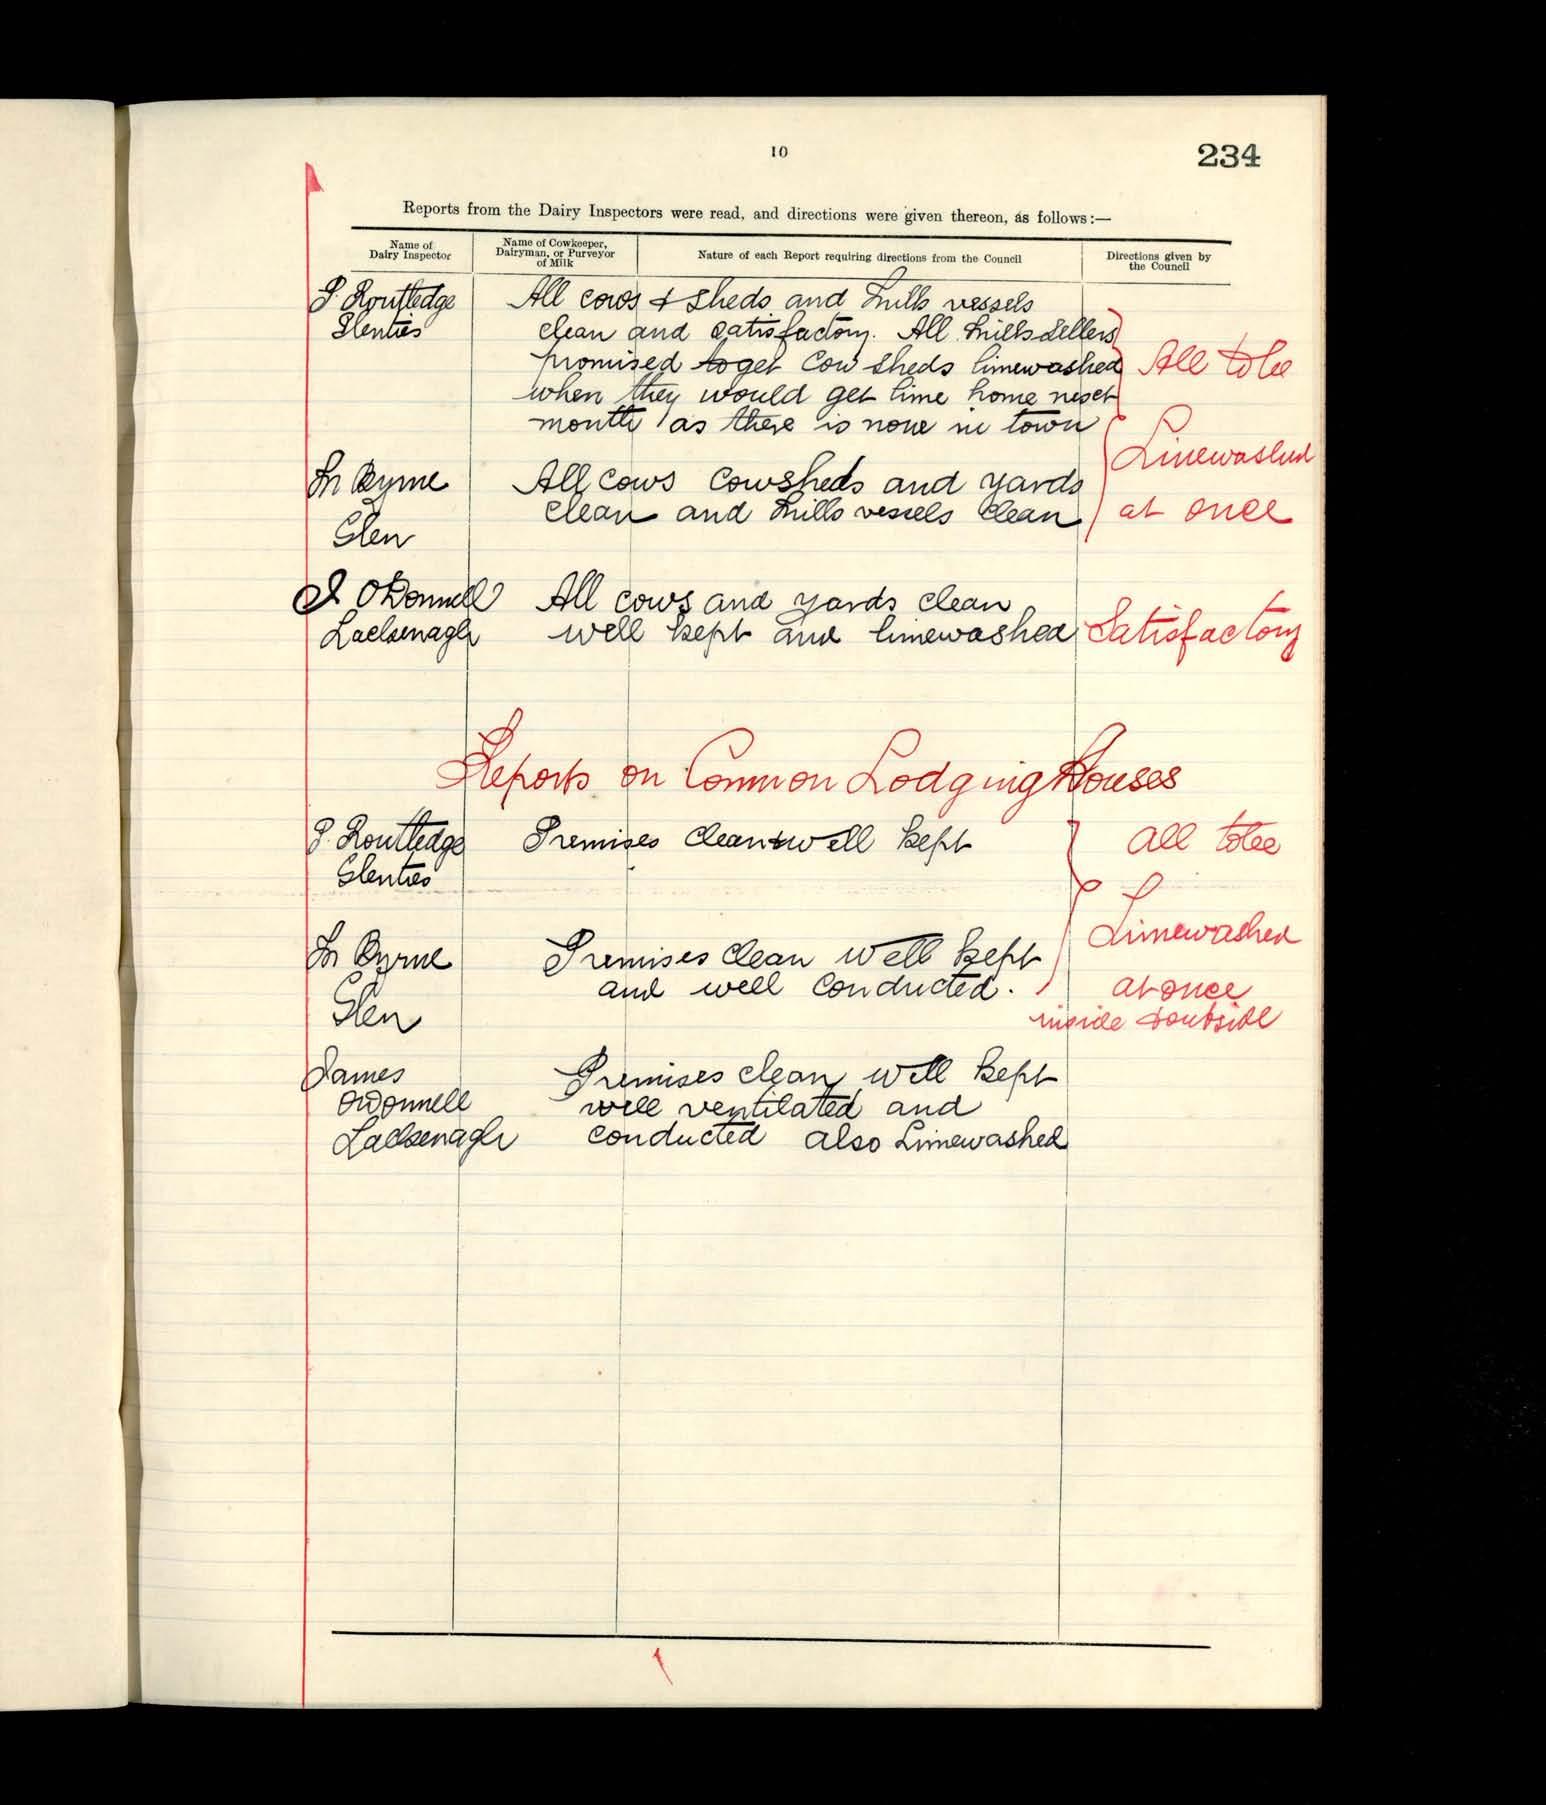 10
234
Reports from the Dairy Inspectors were read, and directions were given thereon, as follows:—
Name of Dairy Inspector
Name of Cowkeeper, Dairyman, or Purveyor of Milk
Nature of each Report requiring directions from the Council
Directions given by the Council
P. Routledge All cows & sheds and milk vessels
Glenties clean and satisfactory. All milk sellers
promised to get cow sheds limewashed All to be
when they would get lime home next
month as there is none in town Limewashed
Byrne All cows cowsheds and yards
clean and milk vessels clean at once
Glen
J O'Donnell All cows and yards clean
Lackenagh well kept and limewashed Satisfactory
Reports on Common Lodging Houses
P. Routledge Premises clean & well kept All to be
Glenties
Limewashed
Byrne Premises clean well kept
and well conducted. at once
Glen inside & outside
James Premises clean well kept
O'Donnell well ventilated and
Lackenagh conducted also Limewashed